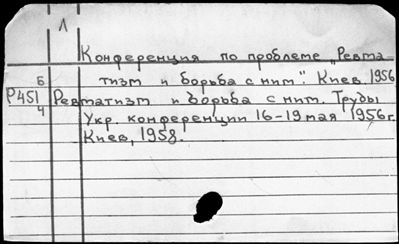 Л
Конференция по проблеме „Ревма
тизм и борьба с ним". Киев 1956
Б
Р451 Ревматизм и борьба с ним. Труды
Ч
Укр. конференции 16-19 мая 1956 г.
Киев, 1958.